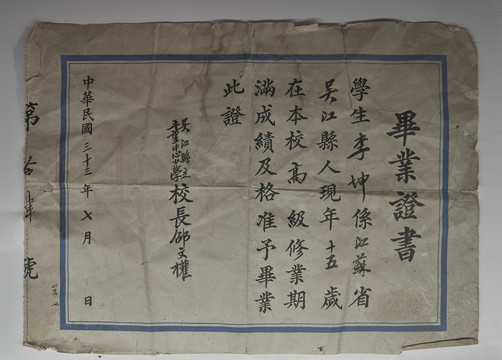 畢業證書
學生李坤係江蘇省
吳江縣人現年十五歲
在本校高級修業期
滿成績及格准予畢業
此證
吳江縣立
中心小學
校長邱文權
中華民國三十三年七月 日
第拾 號